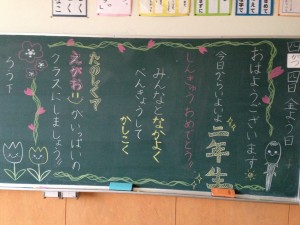 四月四日金よう日
おはようございます。
しんきゅうおめでとう。
今日からいよいよ二年生
みんなとなかよく
べんきょうして
かしこく
たのしくて
えがおがいっぱいの
クラスにしましょう。